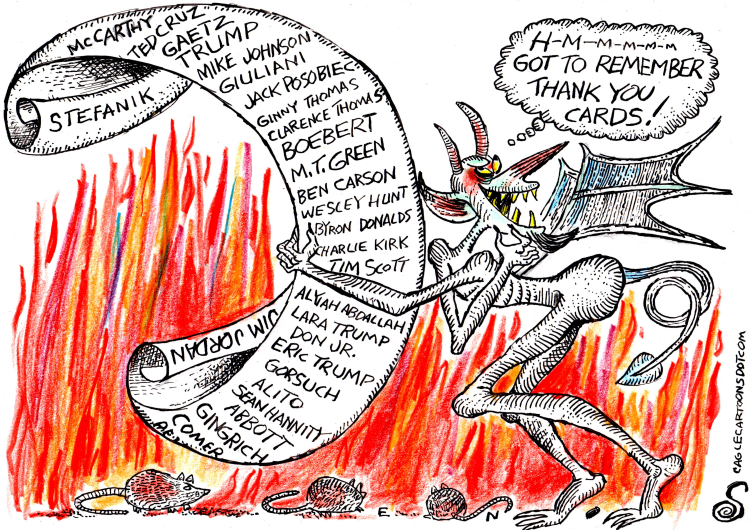 McCARTHY
TED CRUZ
GAETZ
TRUMP
MIKE JOHNSON
GIULIANI
STEFANIK
JACK POSOBIEC
GINNY THOMAS
CLARENCE THOMAS
BOEBERT
M.T. GREEN
BEN CARSON
WESLEY HUNT
BYRON DONALDS
CHARLIE KIRK
TIM SCOTT
ALYAH ABDALLAH
LARA TRUMP
DON JR.
ERIC TRUMP
GORSUCH
ALITO
SEAN HANNITY
ABBOTT
GINGRICH
COMER
JIM JORDAN
H-M-M-M-M-M
GOT TO REMEMBER
THANK YOU
CARDS!
EAGLECARTOONSDOTCOM